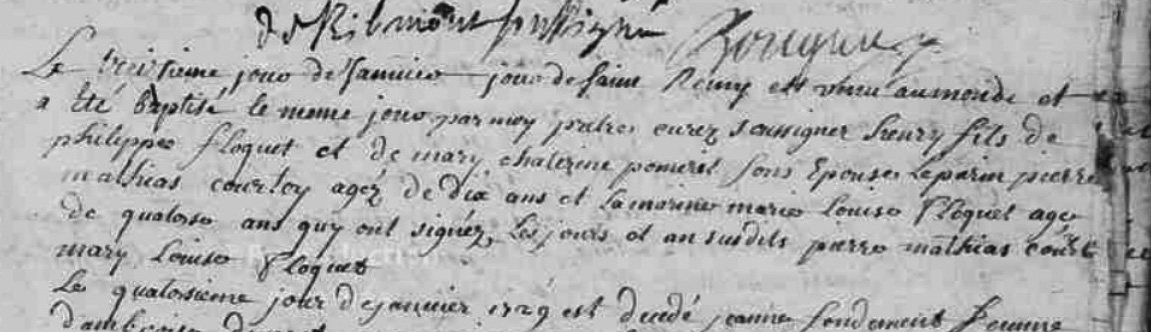 de Ribmont soussigné
Le treizieme jour de Janvier jour de saint Remy est venu au monde et
a été baptisé le meme jour par moy pretre curez soussigner henry fils de
philippe floquet et de mary chaterine pomeret sons Epouse le parin pierre
mathias courtoy agéz de dix ans et la marine marie louise floquet age
de quatorse ans quy ont signéz, les jours et an susdits pierre mathias court
mary louise floquet
Le quatorsieme jour de janvier 1729 est decedé jeanne fondement femme